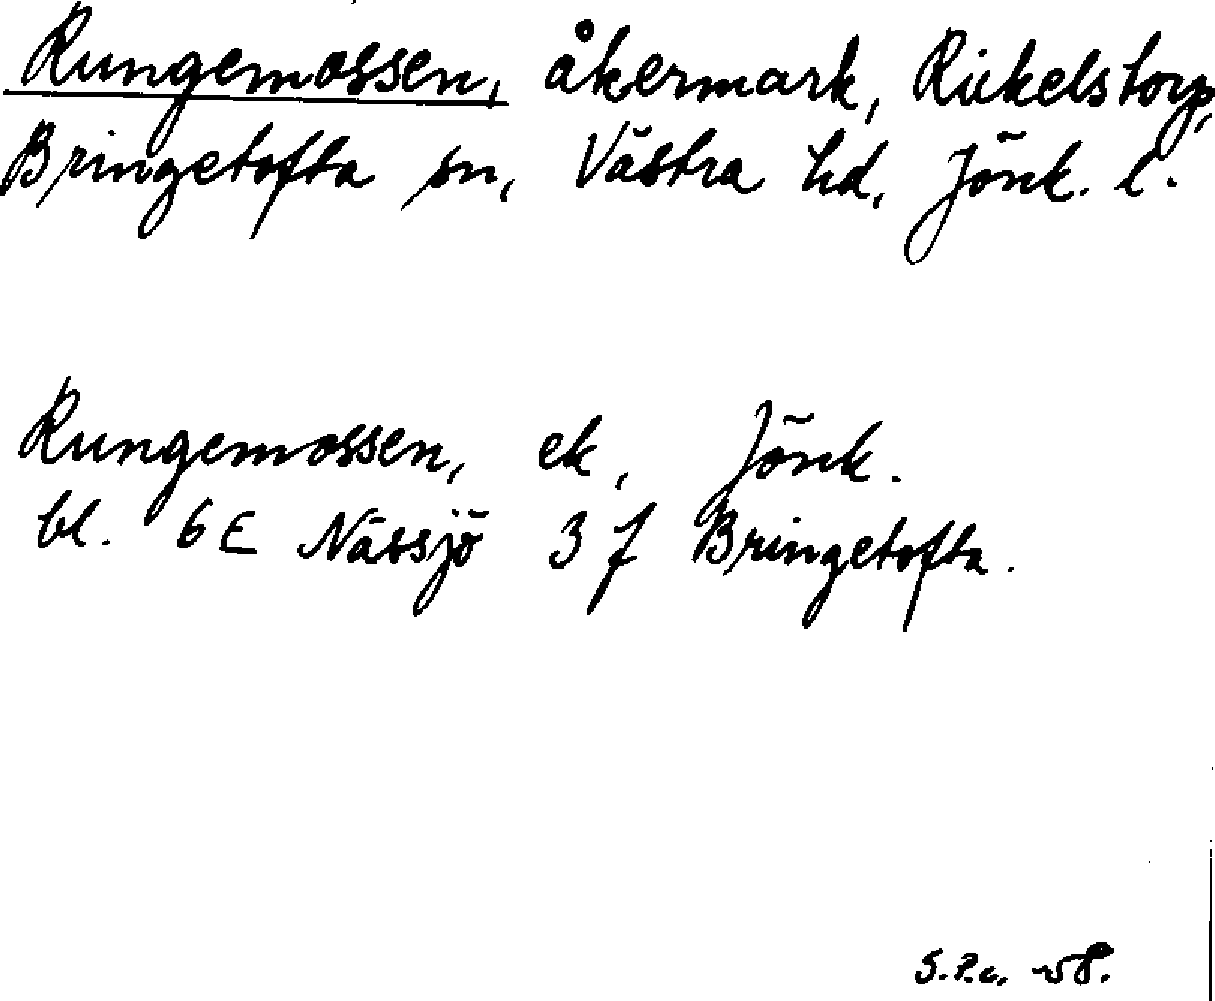 Rungemossen, åkermark, Rickelstorp,
Bringetofta sn, Västra hd, Jönk. l.
Rungemossen, ek, Jönk.
bl. 6E Nässjö 3 f Bringetofta.